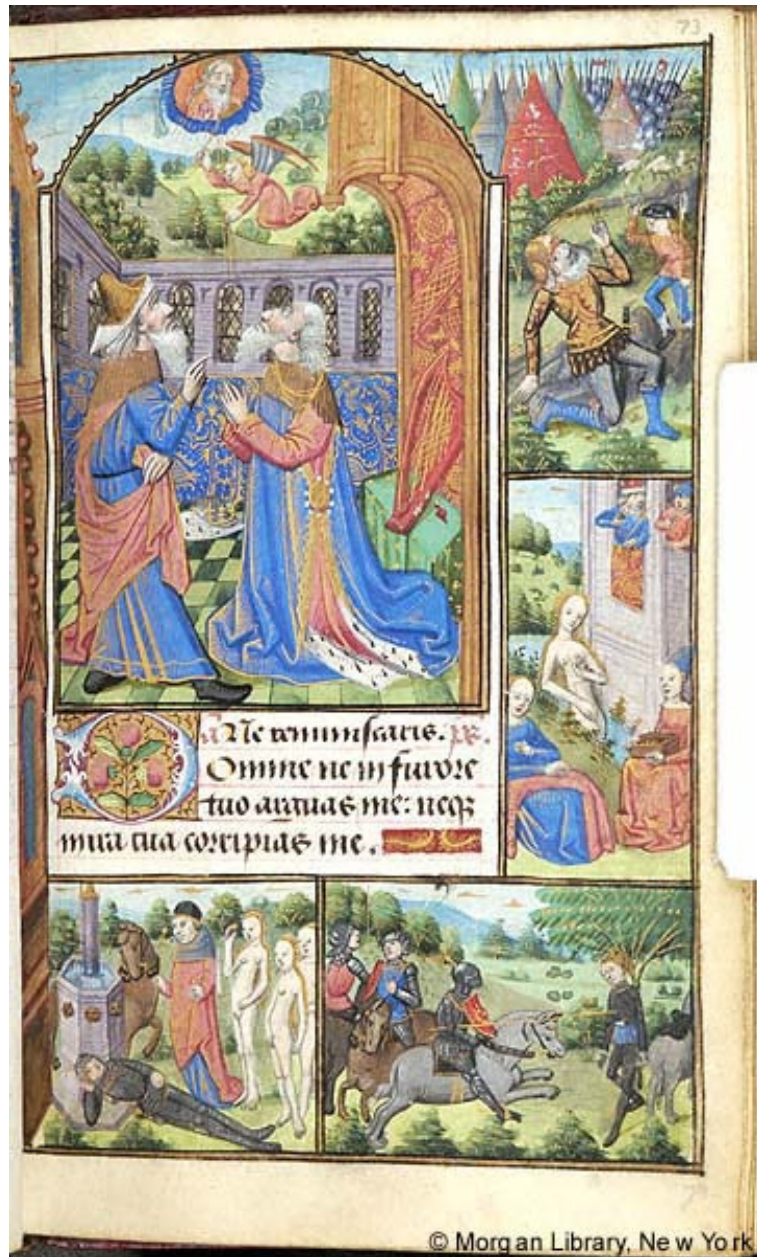 73
a Ne reminiscaris. ps.
Domine ne in furore
tuo arguas me: neqz
in ira tua corripias me.
© Morgan Library, New York